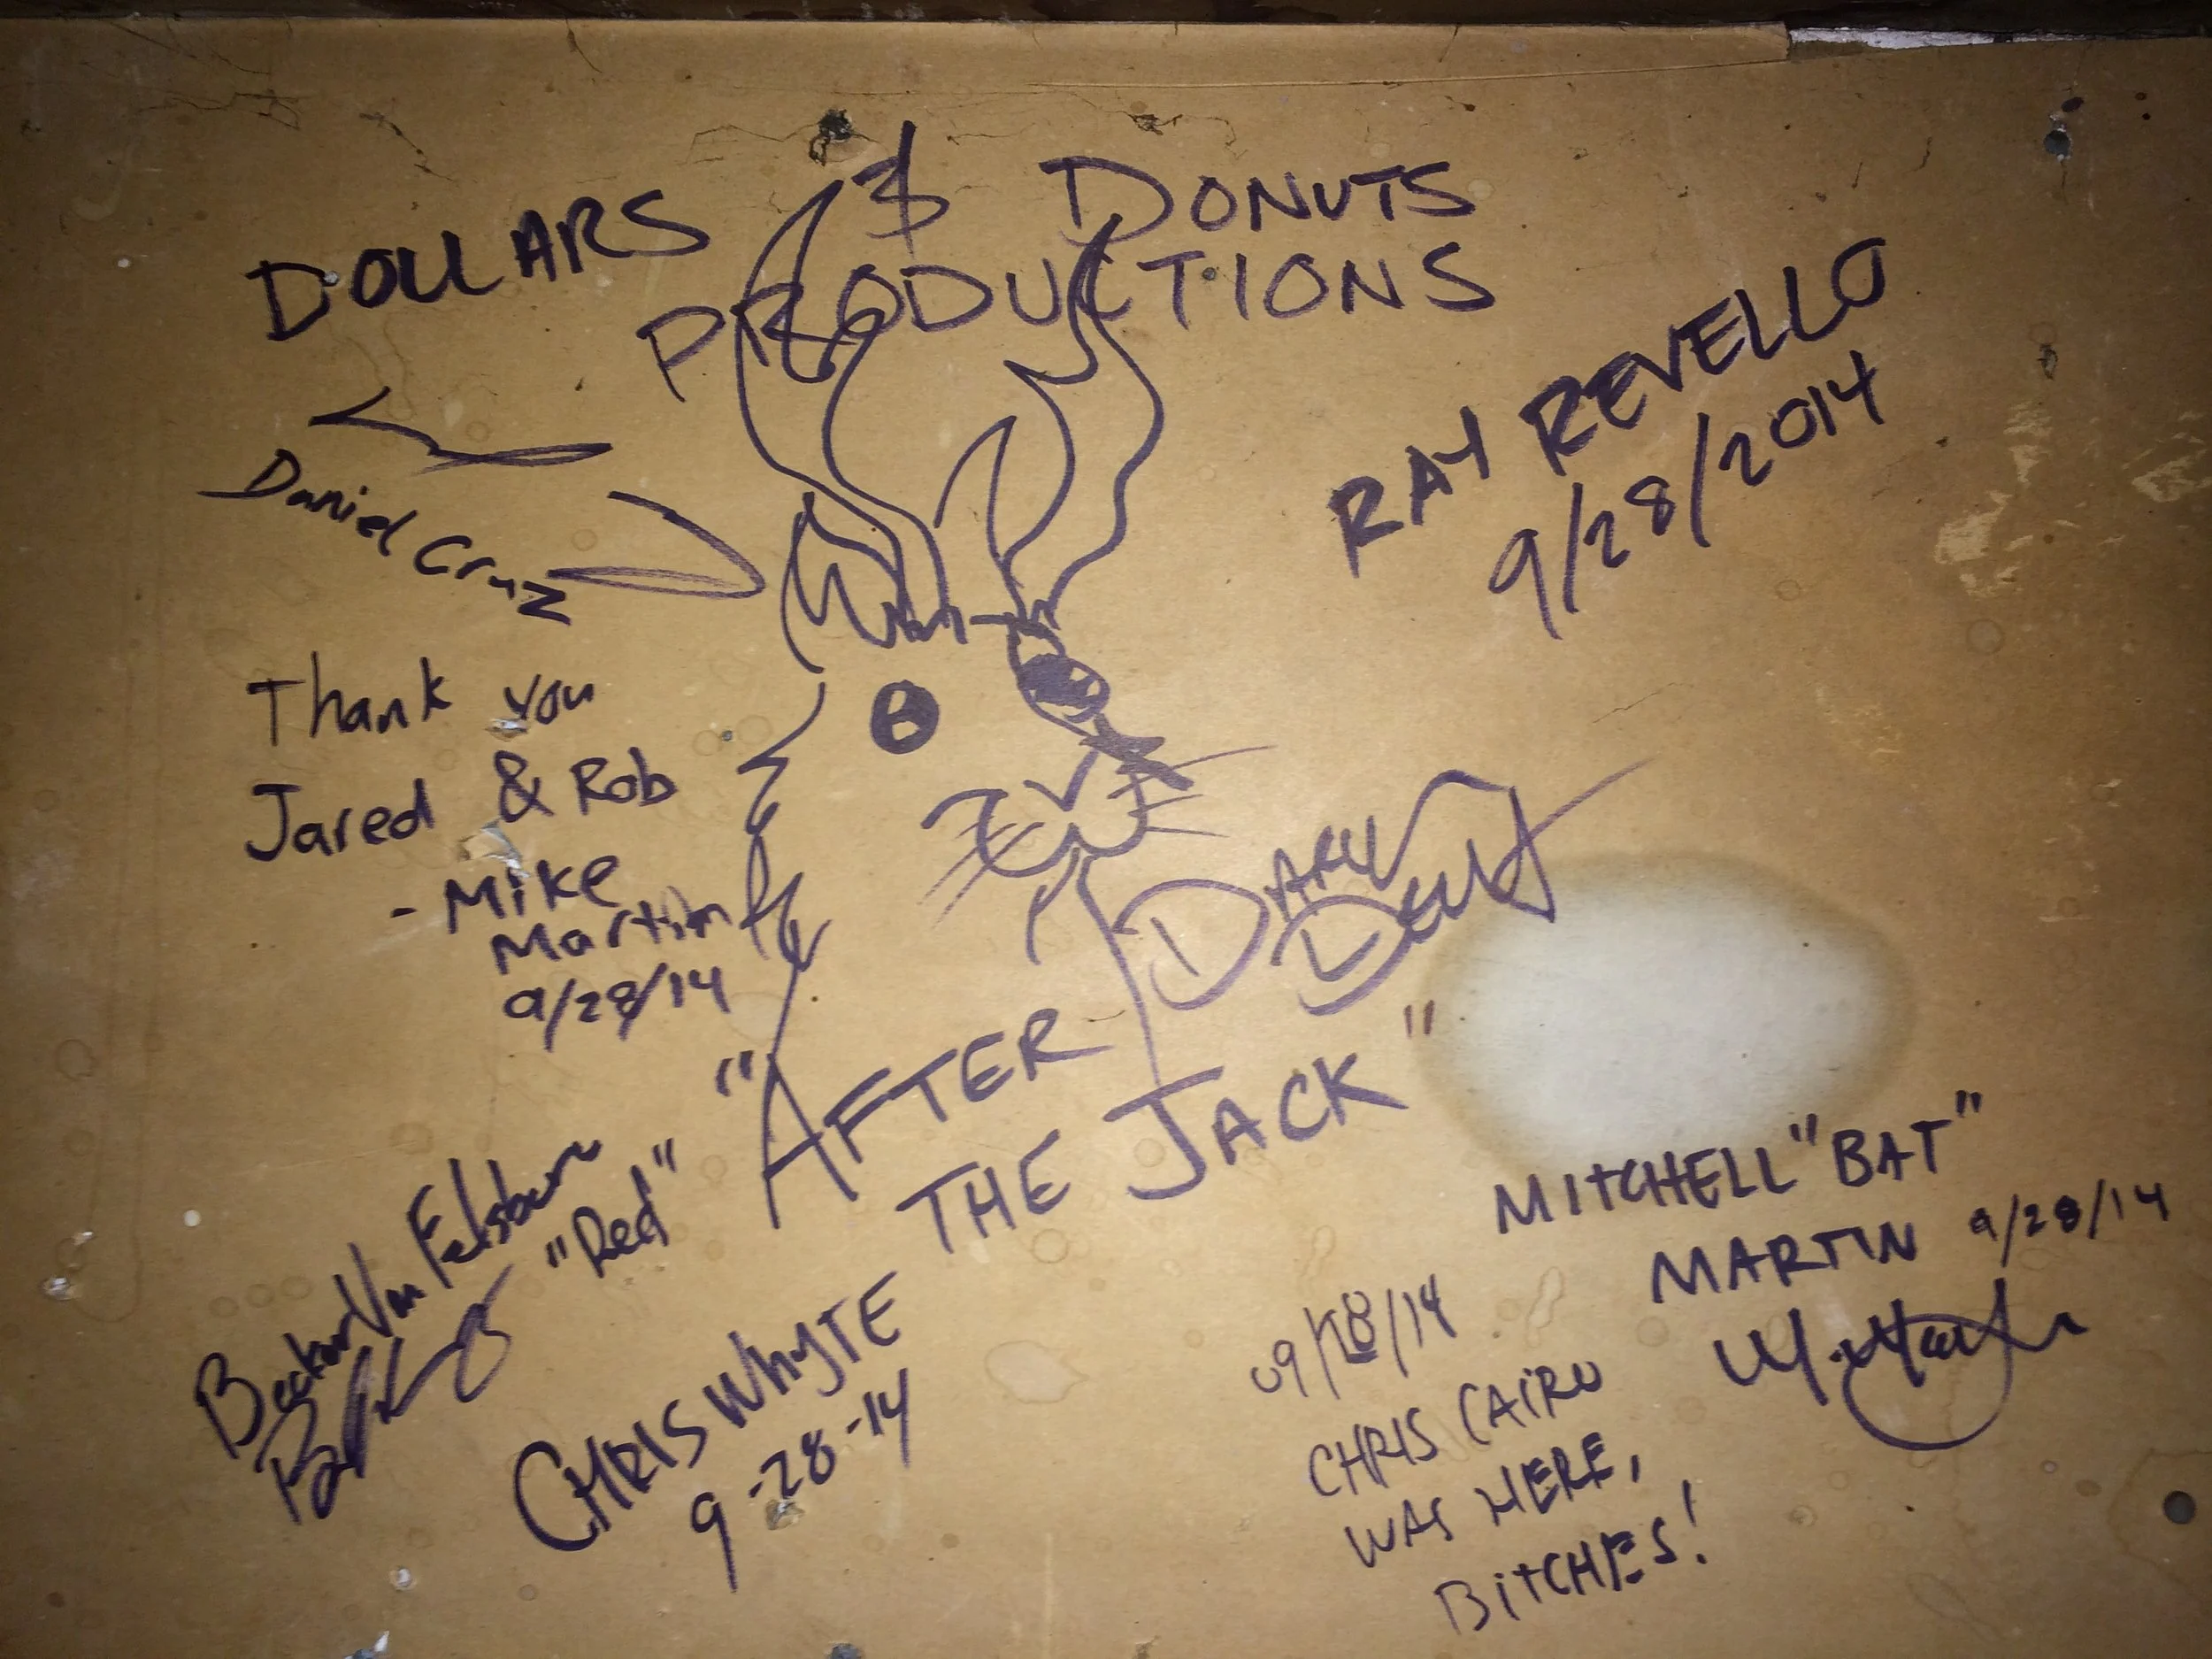 DOLLARS & DONUTS
PRODUCTIONS
RAY REVELLO
9/28/2014
Daniel Cruz
Thank you
Jared & Rob
- Mike
Martin
9/28/14
DARYL
DENT
"AFTER
THE JACK"
Van Felsburg
"Red"
CHRIS WHYTE
9-28-14
MITCHELL "BAT"
MARTIN 9/28/14
09/28/14
CHRIS CAIRO
WAS HERE,
BITCHES!